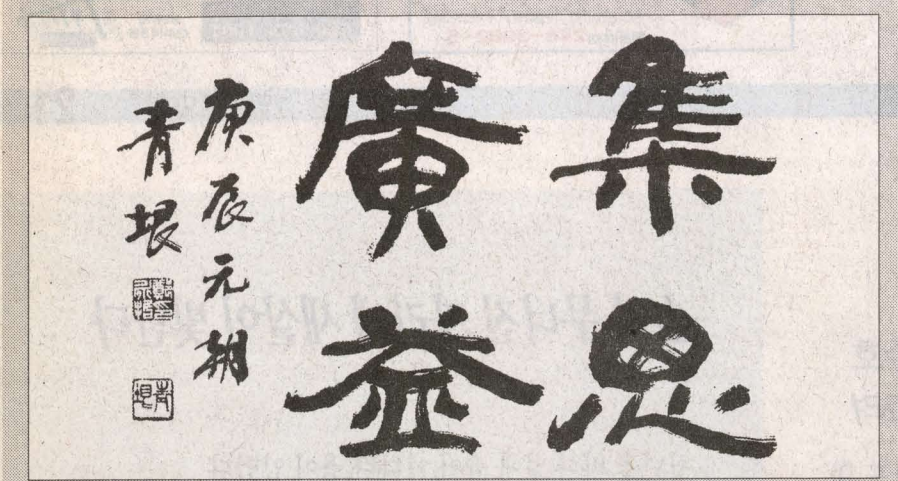 集思
廣益
庚辰元朝
青垠